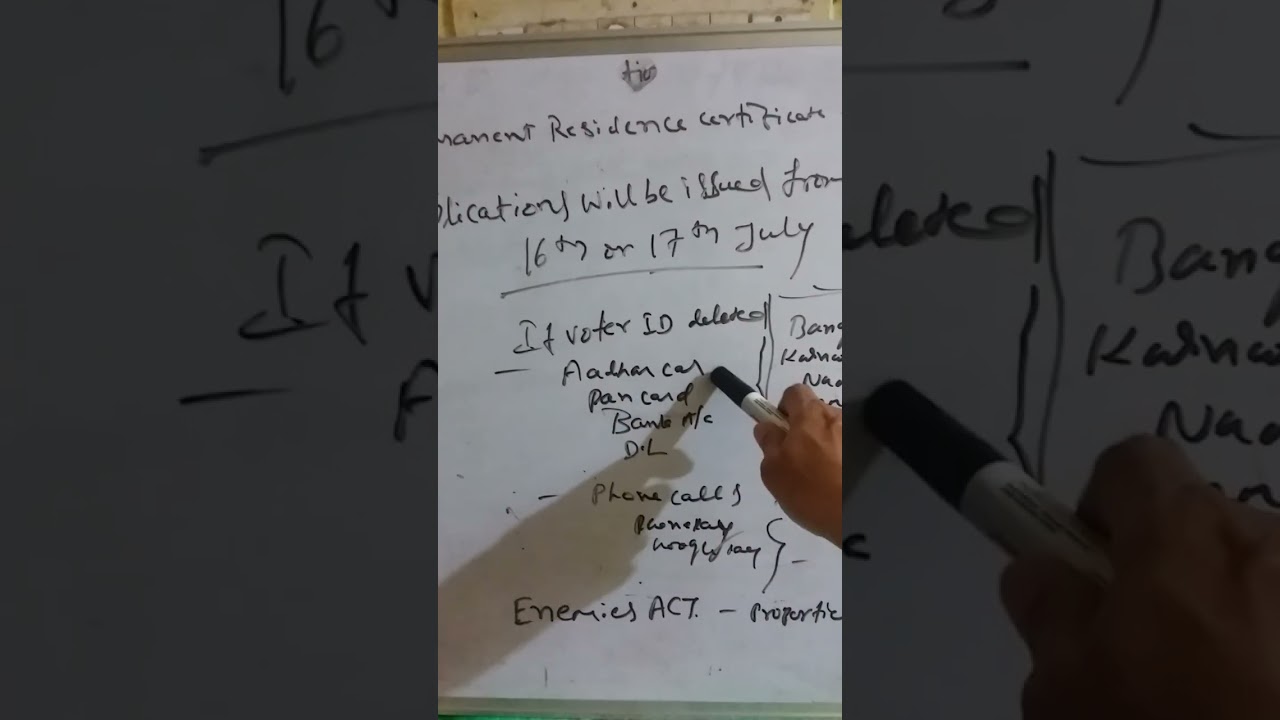 tio
manent Residence certificate
plications will be issued from
16th or 17th July
If voter ID deleted
— Aadhar car
Pan card
Bank A/c
D.L
— Phone calls
Phonepay
Googlepay
Enemies ACT. — Propertie
Bang
Karna
Naa